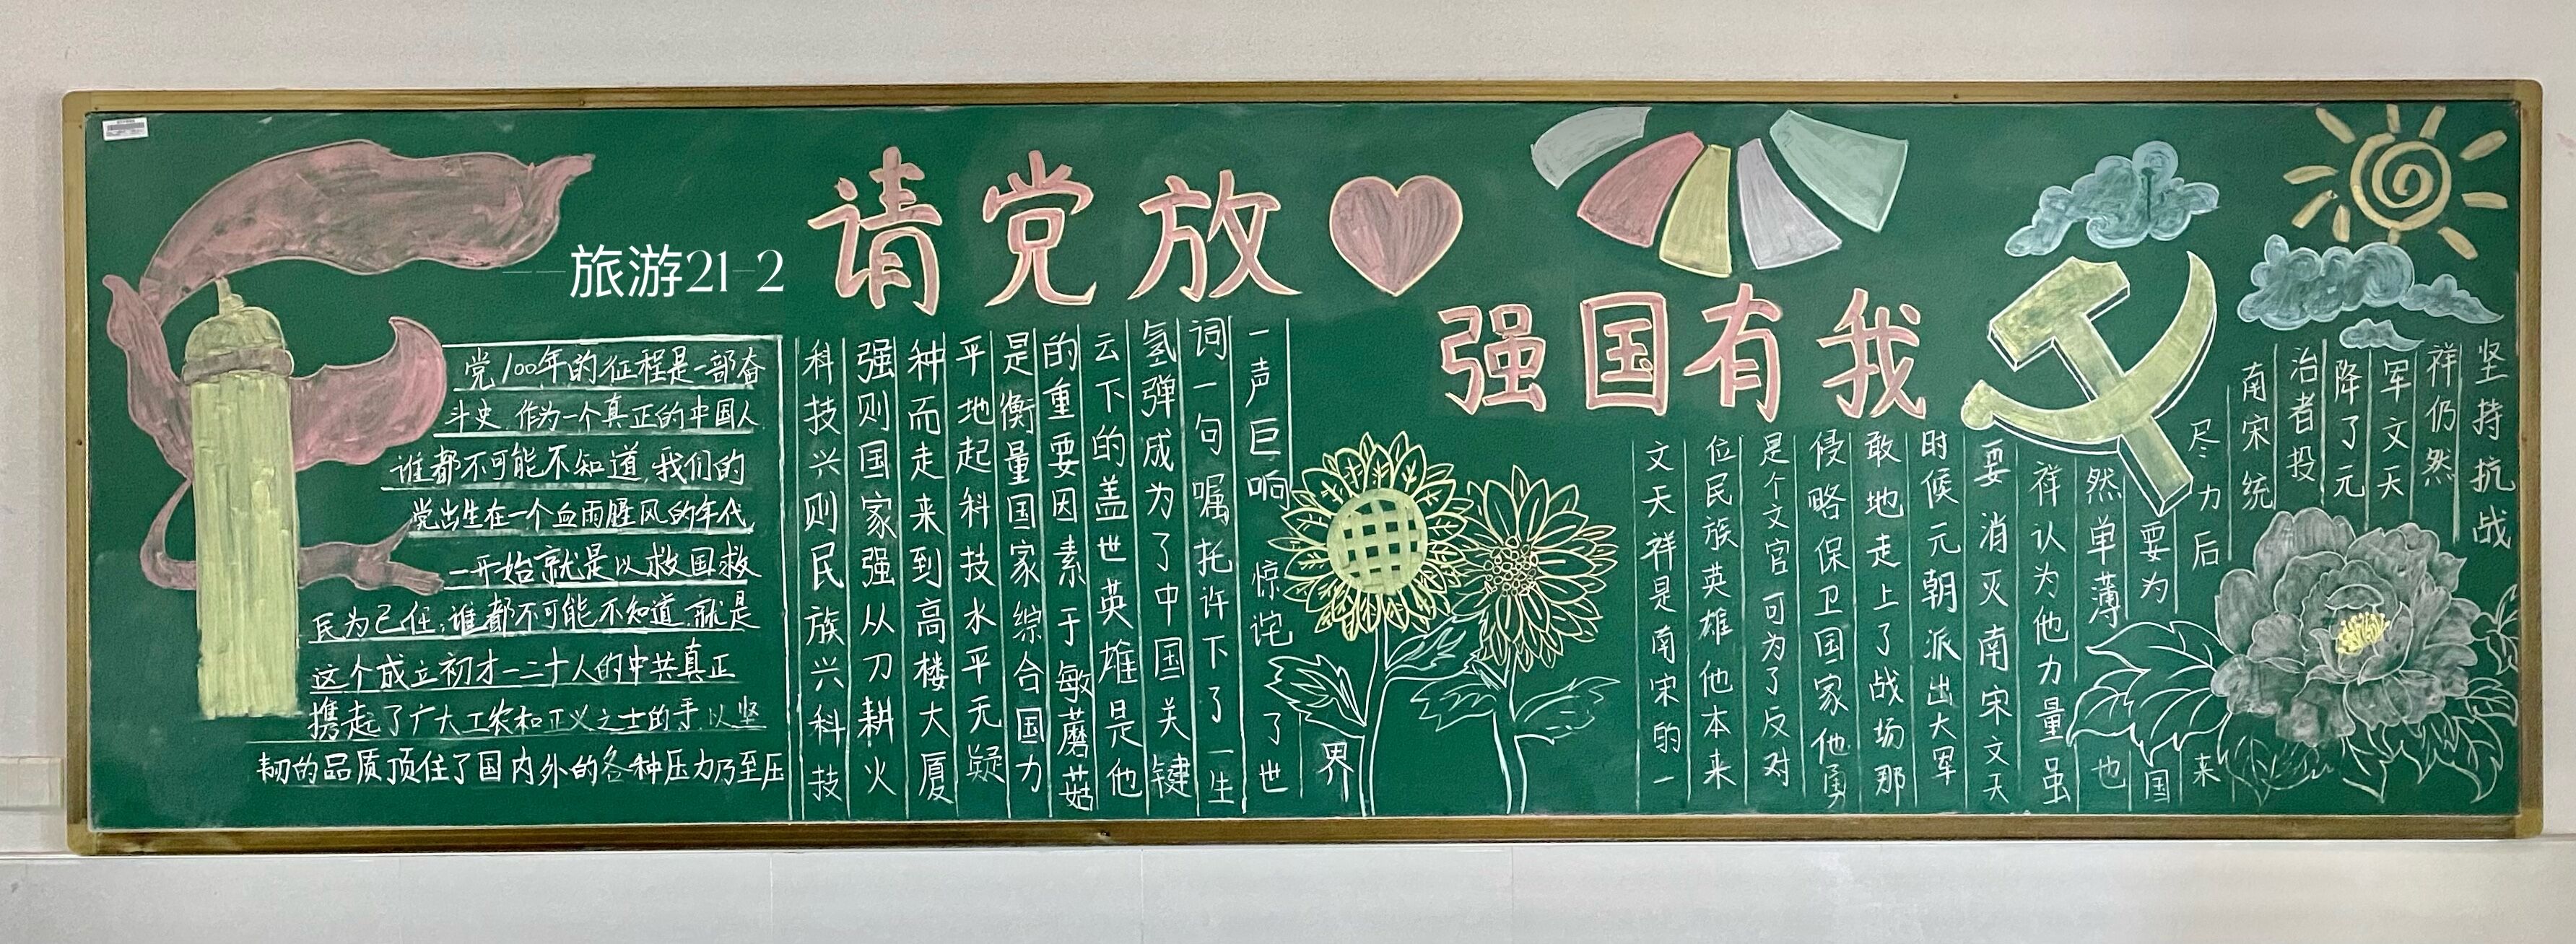 请党放
强国有我
——旅游21-2
党100年的征程是一部奋
斗史.作为一个真正的中国人
谁都不可能不知道,我们的
党出生在一个血雨腥风的年代
一开始就是以救国救
民为己任;谁都不可能不知道.就是
这个成立初才一二十人的中共真正
携起了广大工农和正义之士的手.以坚
韧的品质顶住了国内外的各种压力乃至压
科技兴则民族兴科技
强则国家强从刀耕火
种而走来到高楼大厦
平地起科技水平无疑
是衡量国家综合国力
的重要因素于敏蘑菇
云下的盖世英雄是他
氢弹成为了中国关键
词一句嘱托许下了一生
一声巨响惊诧了世
界
文天祥是南宋的一
位民族英雄他本来
是个文官可为了反对
侵略保卫国家他勇
敢地走上了战场那
时候元朝派出大军
要消灭南宋文天
祥认为他力量虽
然单薄也
要为国
尽力后来
南宋统
治者投
降了元
军文天
祥仍然
坚持抗战